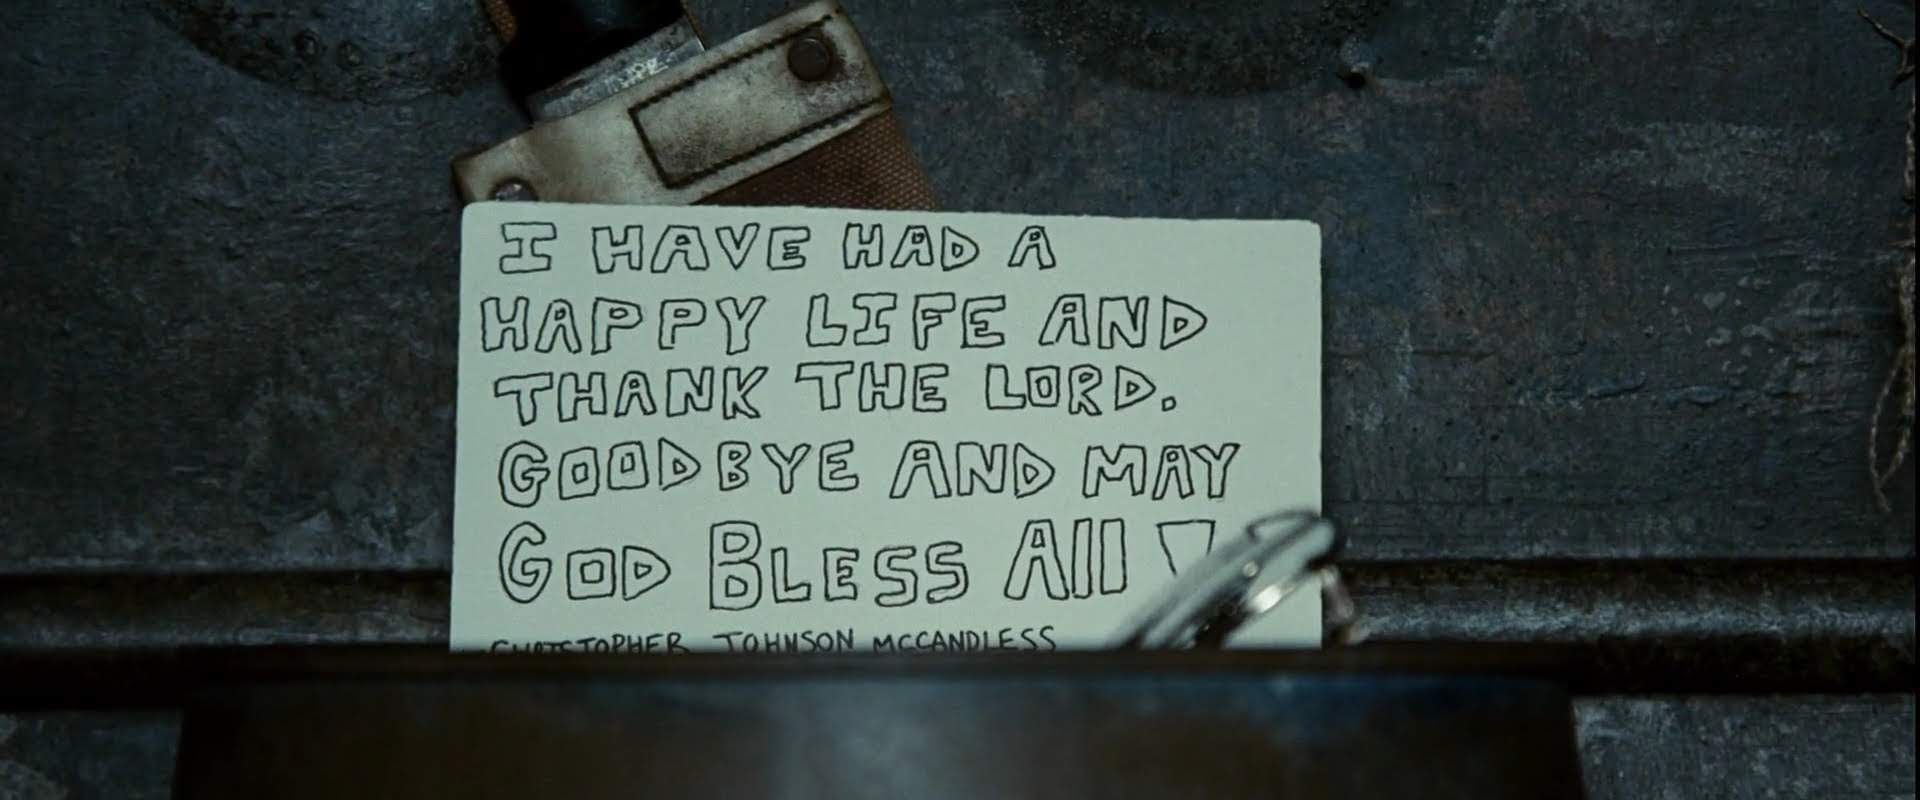 I HAVE HAD A
HAPPY LIFE AND
THANK THE LORD.
GOODBYE AND MAY
GOD BLESS All!
CHRISTOPHER JOHNSON MCCANDLESS